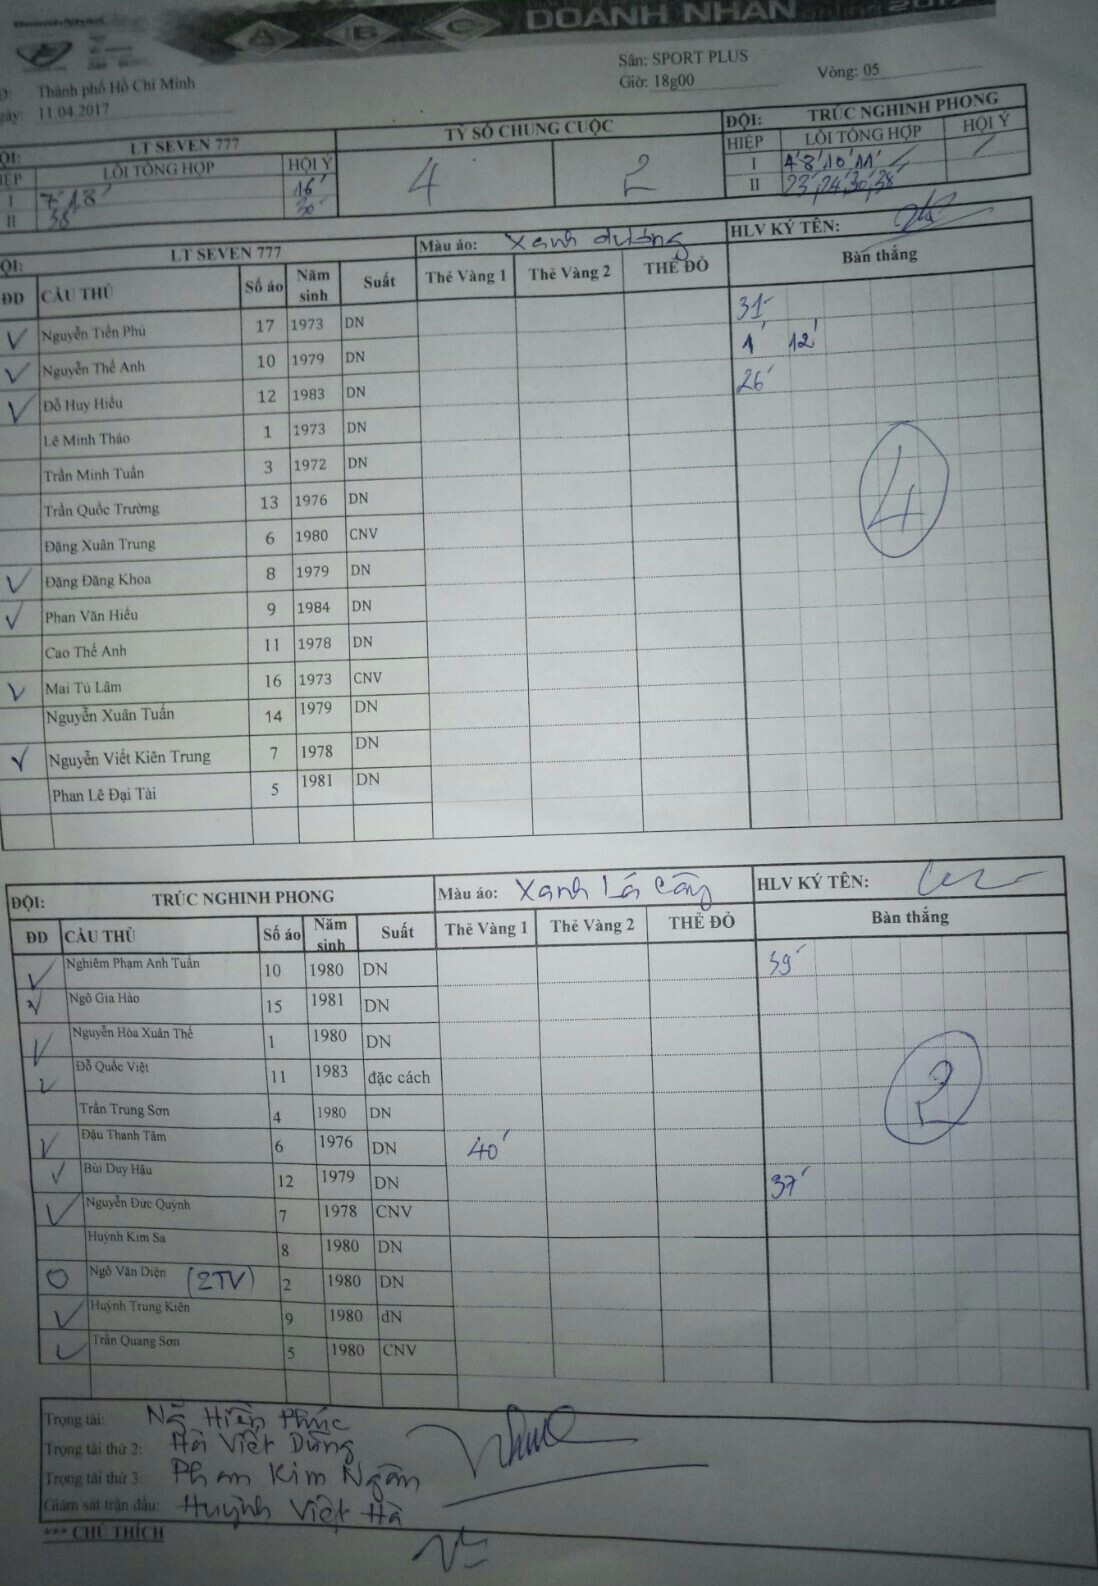 DOANH NHÂN
A B C
Thành phố Hồ Chí Minh
11.04.2017
Sân: SPORT PLUS
Giờ: 18g00
Vòng: 05
LT SEVEN 777
TỶ SỐ CHUNG CUỘC
ĐỘI: TRÚC NGHINH PHONG
LỖI TỔNG HỢP HỘI Ý
HIỆP LỖI TỔNG HỢP HỘI Ý
I 7' 18' 16'
4 2
I 4' 8' 10' 11'
II 38' 30'
II 23', 24', 30', 38'
LT SEVEN 777 Màu áo: Xanh dương HLV KÝ TÊN:
ĐD CẦU THỦ Số áo Năm sinh Suất Thẻ Vàng 1 Thẻ Vàng 2 THẺ ĐỎ Bàn thắng
Nguyễn Tiến Phú 17 1973 DN 31'
Nguyễn Thế Anh 10 1979 DN 1' 12'
Đỗ Huy Hiếu 12 1983 DN 26'
Lê Minh Thảo 1 1973 DN
Trần Minh Tuấn 3 1972 DN
Trần Quốc Trường 13 1976 DN
Đặng Xuân Trung 6 1980 CNV
Đặng Đăng Khoa 8 1979 DN
Phan Văn Hiếu 9 1984 DN
Cao Thế Anh 11 1978 DN
Mai Tú Lâm 16 1973 CNV
Nguyễn Xuân Tuấn 14 1979 DN
Nguyễn Viết Kiên Trung 7 1978 DN
Phan Lê Đại Tài 5 1981 DN
4
ĐỘI: TRÚC NGHINH PHONG Màu áo: Xanh Lá Cây HLV KÝ TÊN:
ĐD CẦU THỦ Số áo Năm sinh Suất Thẻ Vàng 1 Thẻ Vàng 2 THẺ ĐỎ Bàn thắng
Nghiêm Phạm Anh Tuấn 10 1980 DN 39'
Ngô Gia Hào 15 1981 DN
Nguyễn Hòa Xuân Thế 1 1980 DN
Đỗ Quốc Việt 11 1983 đặc cách
Trần Trung Sơn 4 1980 DN
Đậu Thanh Tâm 6 1976 DN 40'
Bùi Duy Hậu 12 1979 DN 37'
Nguyễn Đức Quỳnh 7 1978 CNV
Huỳnh Kim Sa 8 1980 DN
Ngô Văn Diện (2TV) 2 1980 DN
Huỳnh Trung Kiên 9 1980 dN
Trần Quang Sơn 5 1980 CNV
2
Trọng tài: Ng Hiền Phúc
Trọng tài thứ 2: Hà Viết Dũng
Trọng tài thứ 3: Phan Kim Ngân
Giám sát trận đấu: Huỳnh Việt Hà
*** CHÚ THÍCH